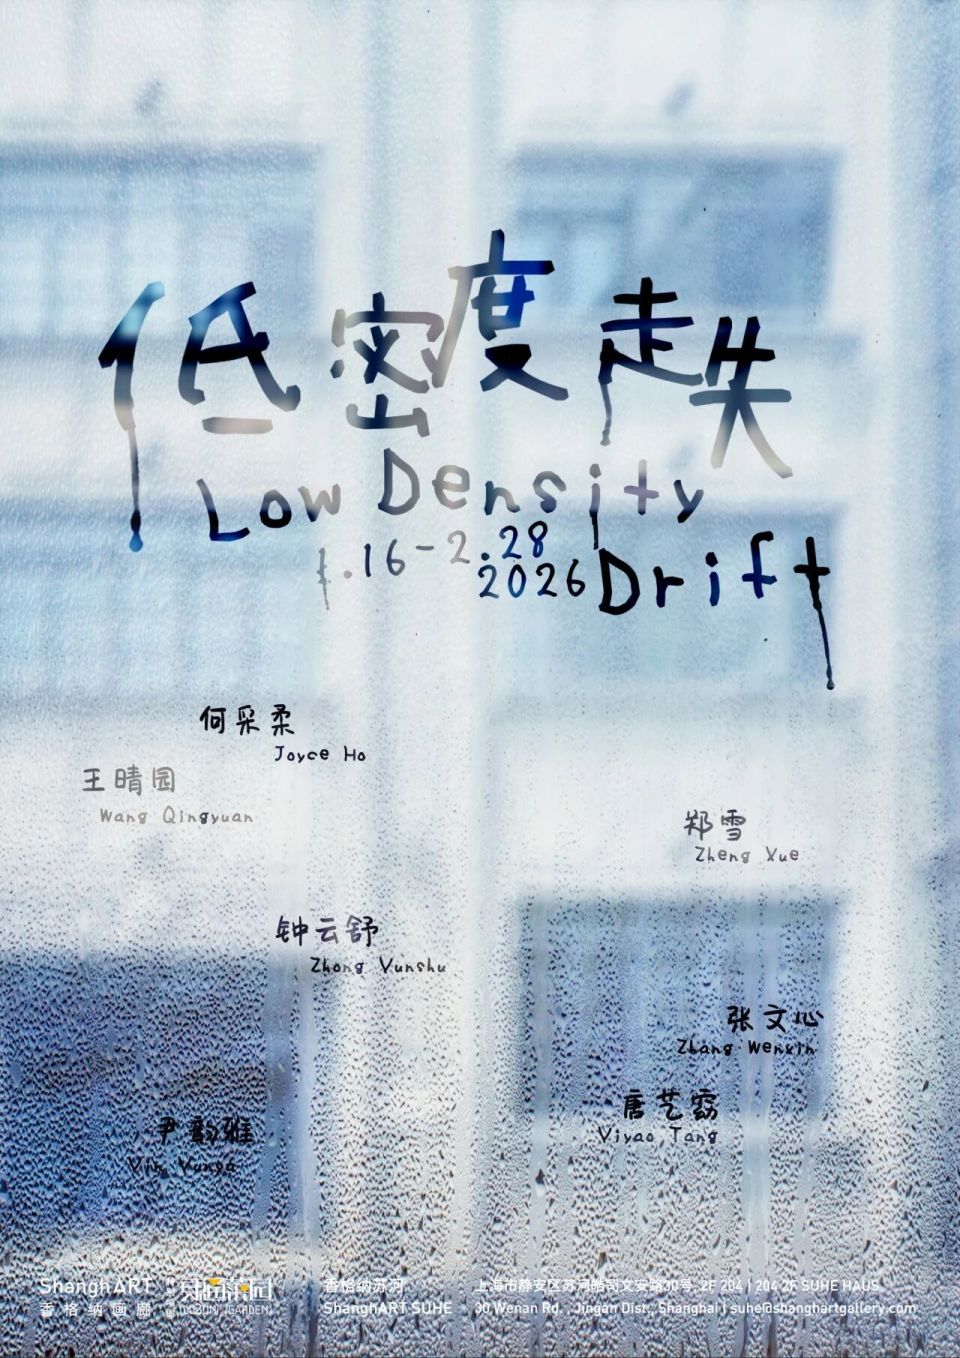 低密度走失
Low Density
1.16-2.28
2026
Drift
何采柔
Joyce Ho
王晴园
Wang Qingyuan
郑雪
Zheng Xue
钟云舒
Zhong Yunshu
张文心
Zhang Wenxin
唐艺窈
Yiyao Tang
尹韵雅
Yin Yunya
ShanghART
香格纳画廊
DOZON GARDEN
香格纳苏河
ShanghART SUHE
上海市静安区苏河皓司文安路30号, 2F 204 | 204 2F SUHE HAUS,
30 Wenan Rd., Jingan Dist., Shanghai | suhe@shanghartgallery.com